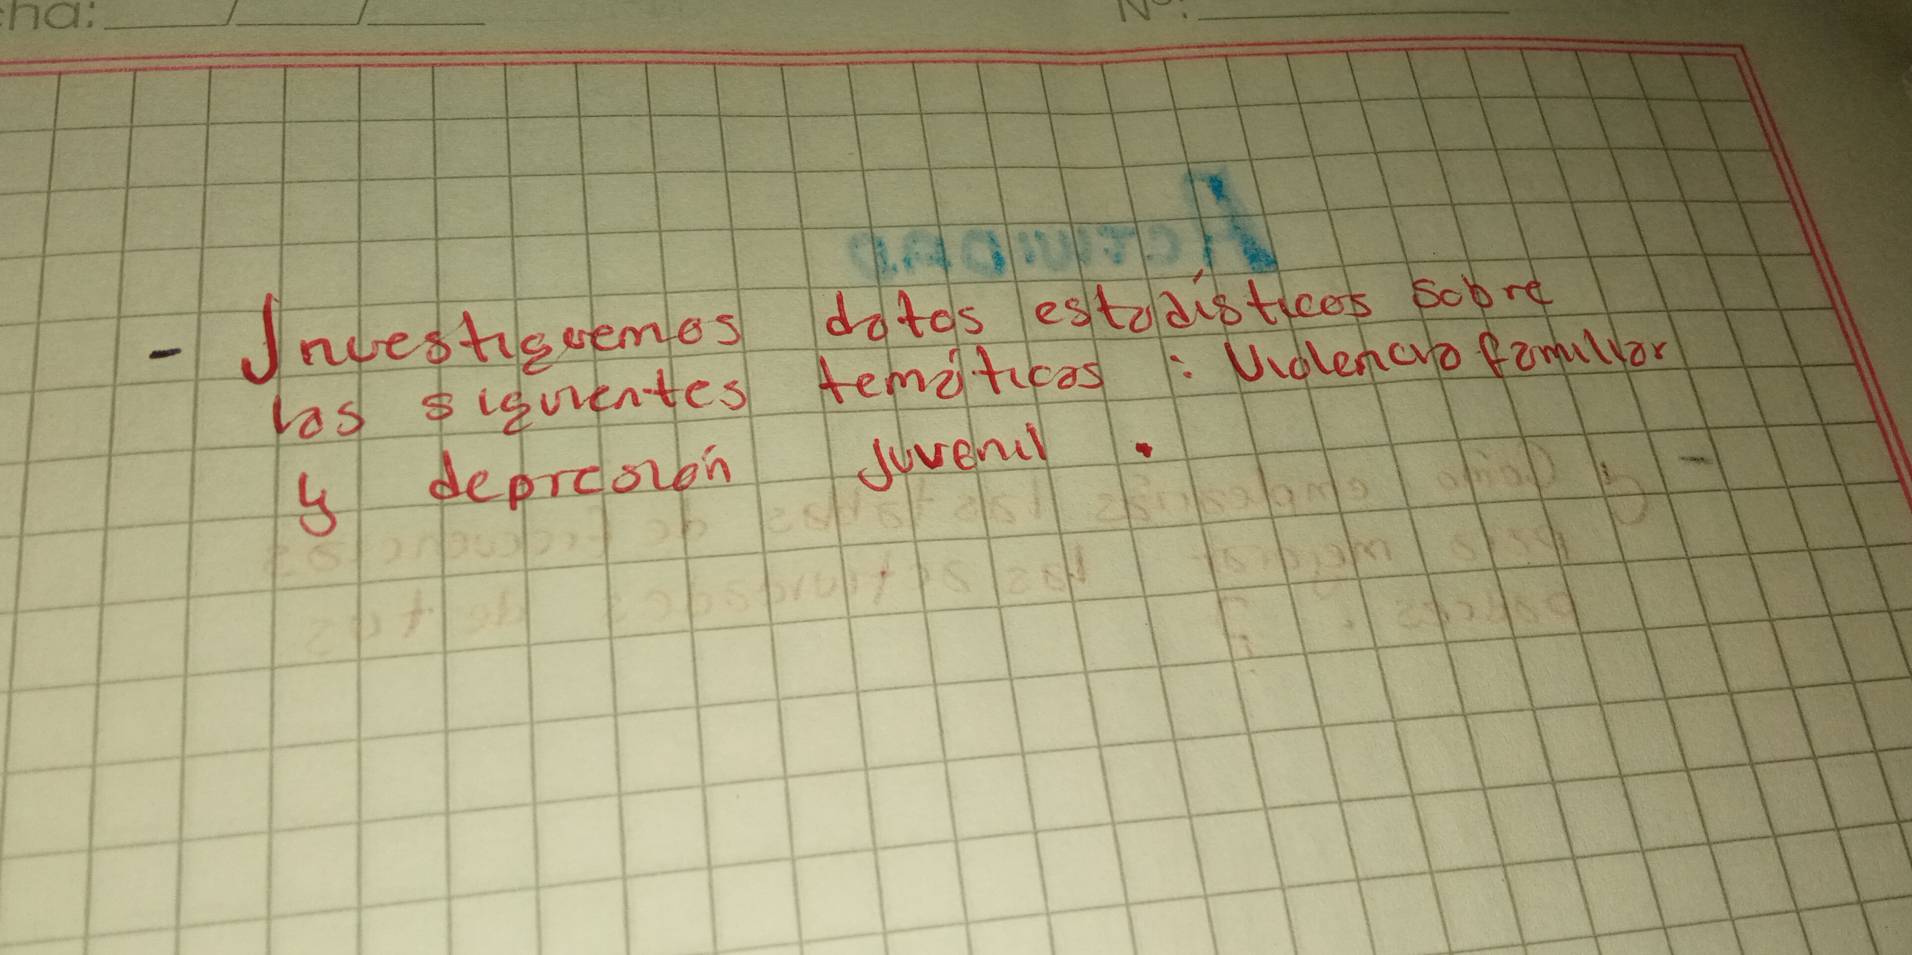 cha: ___/___/___ N°: ___
- Investiguemos datos estadísticos sobre
las siguientes temáticas : Violencia familiar
y depresión juvenil .